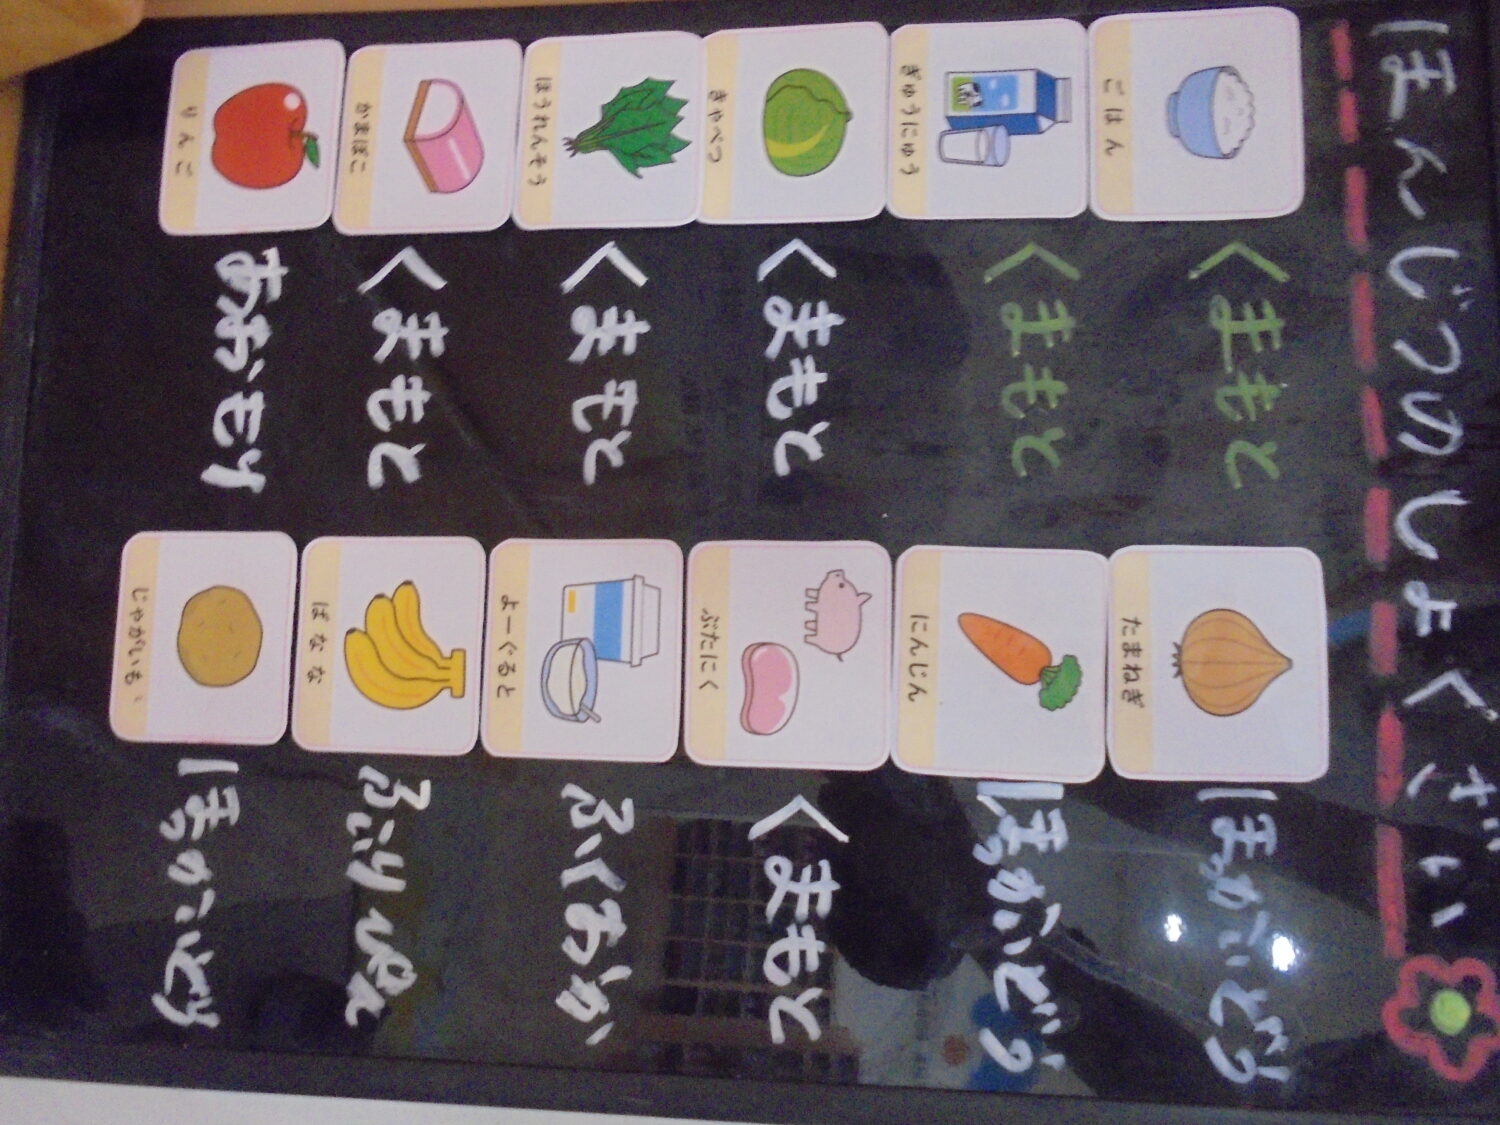 ほんじつのしょくざい
ごはん くまもと
ぎゅうにゅう くまもと
きゃべつ くまもと
ほうれんそう くまもと
かまぼこ くまもと
りんご あおもり
たまねぎ ほっかいどう
にんじん ほっかいどう
ぶたにく くまもと
よーぐると ふくおか
ばなな ふぃりぴん
じゃがいも ほっかいどう